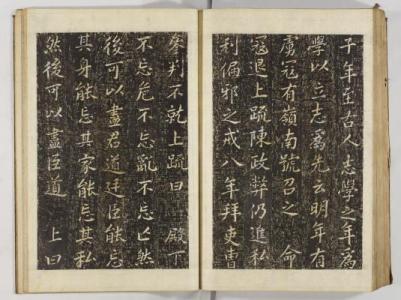 于年至古人志學之年爲
學以立志爲先云明年有
虜寇有嶺南號召之 命
寇退上疏陳政弊仍進私
利偏邪之戒八年拜吏曹
參判不乾上疏曰 殿下
不忘危不忘亂不忘亡然
後可以盡君道廷臣能忘
其身能忘其家能忘其私
然後可以盡臣道 上曰